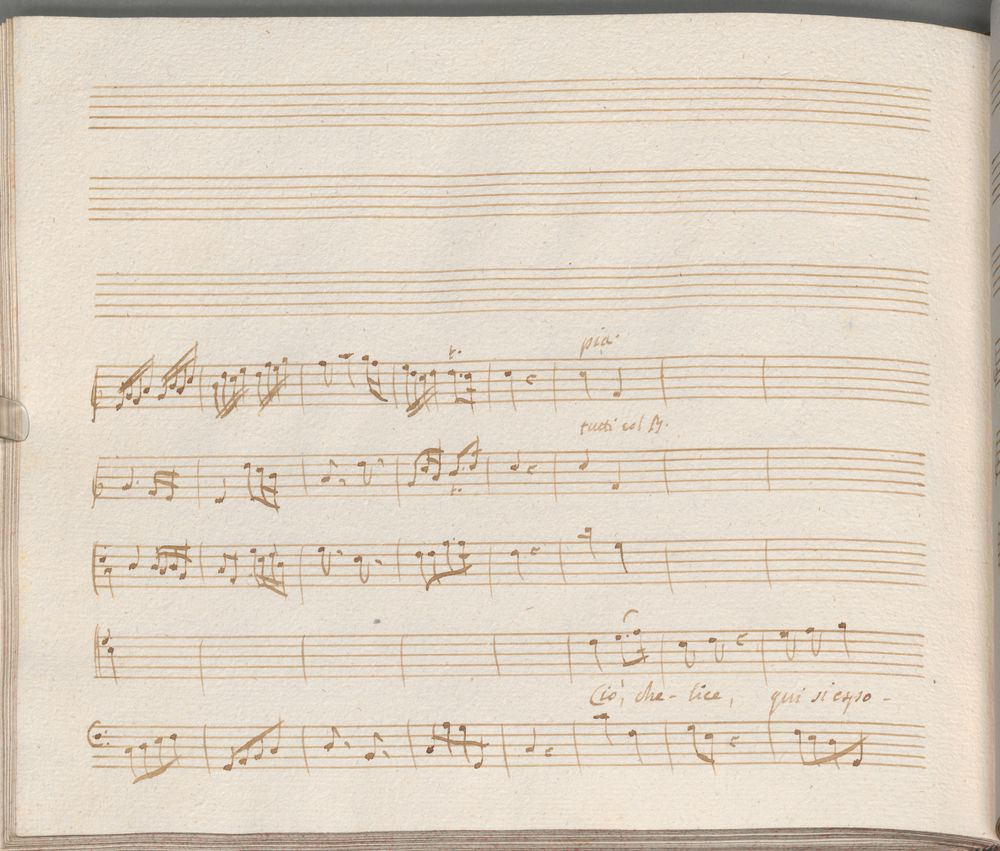 t.
pia.
tutti col B.
t.
Ciò, che lice, qui si espo-